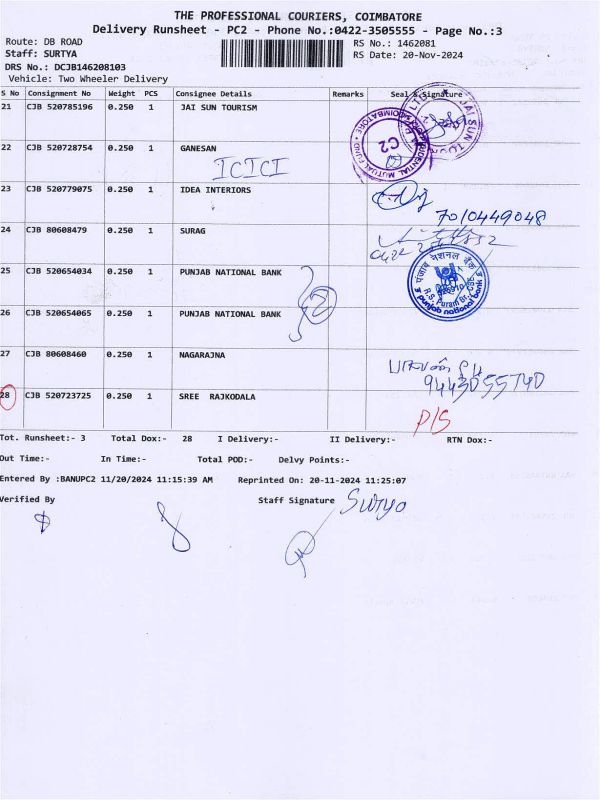 THE PROFESSIONAL COURIERS, COIMBATORE
Delivery Runsheet - PC2 - Phone No.:0422-3505555 - Page No.:3
Route: DB ROAD RS No.: 1462081
Staff: SURTYA RS Date: 20-Nov-2024
DRS No.: DCJB146208103
Vehicle: Two Wheeler Delivery
S No Consignment No Weight PCS Consignee Details Remarks Seal & Signature
21 CJB 520785196 0.250 1 JAI SUN TOURISM
JAI SUN TOUR
COIMBATORE
C2
22 CJB 520728754 0.250 1 GANESAN
ICICI
23 CJB 520779075 0.250 1 IDEA INTERIORS
7010449048
24 CJB 80608479 0.250 1 SURAG
25 CJB 520654034 0.250 1 PUNJAB NATIONAL BANK
पंजाब नेशनल बैंक
R.S. Puram Br.
punjab national bank
26 CJB 520654065 0.250 1 PUNJAB NATIONAL BANK
27 CJB 80608460 0.250 1 NAGARAJNA
28 CJB 520723725 0.250 1 SREE RAJKODALA
P/S
Tot. Runsheet:- 3 Total Dox:- 28 I Delivery:- II Delivery:- RTN Dox:-
Out Time:- In Time:- Total POD:- Delvy Points:-
Entered By :BANUPC2 11/20/2024 11:15:39 AM Reprinted On: 20-11-2024 11:25:07
Verified By Staff Signature Surtyo